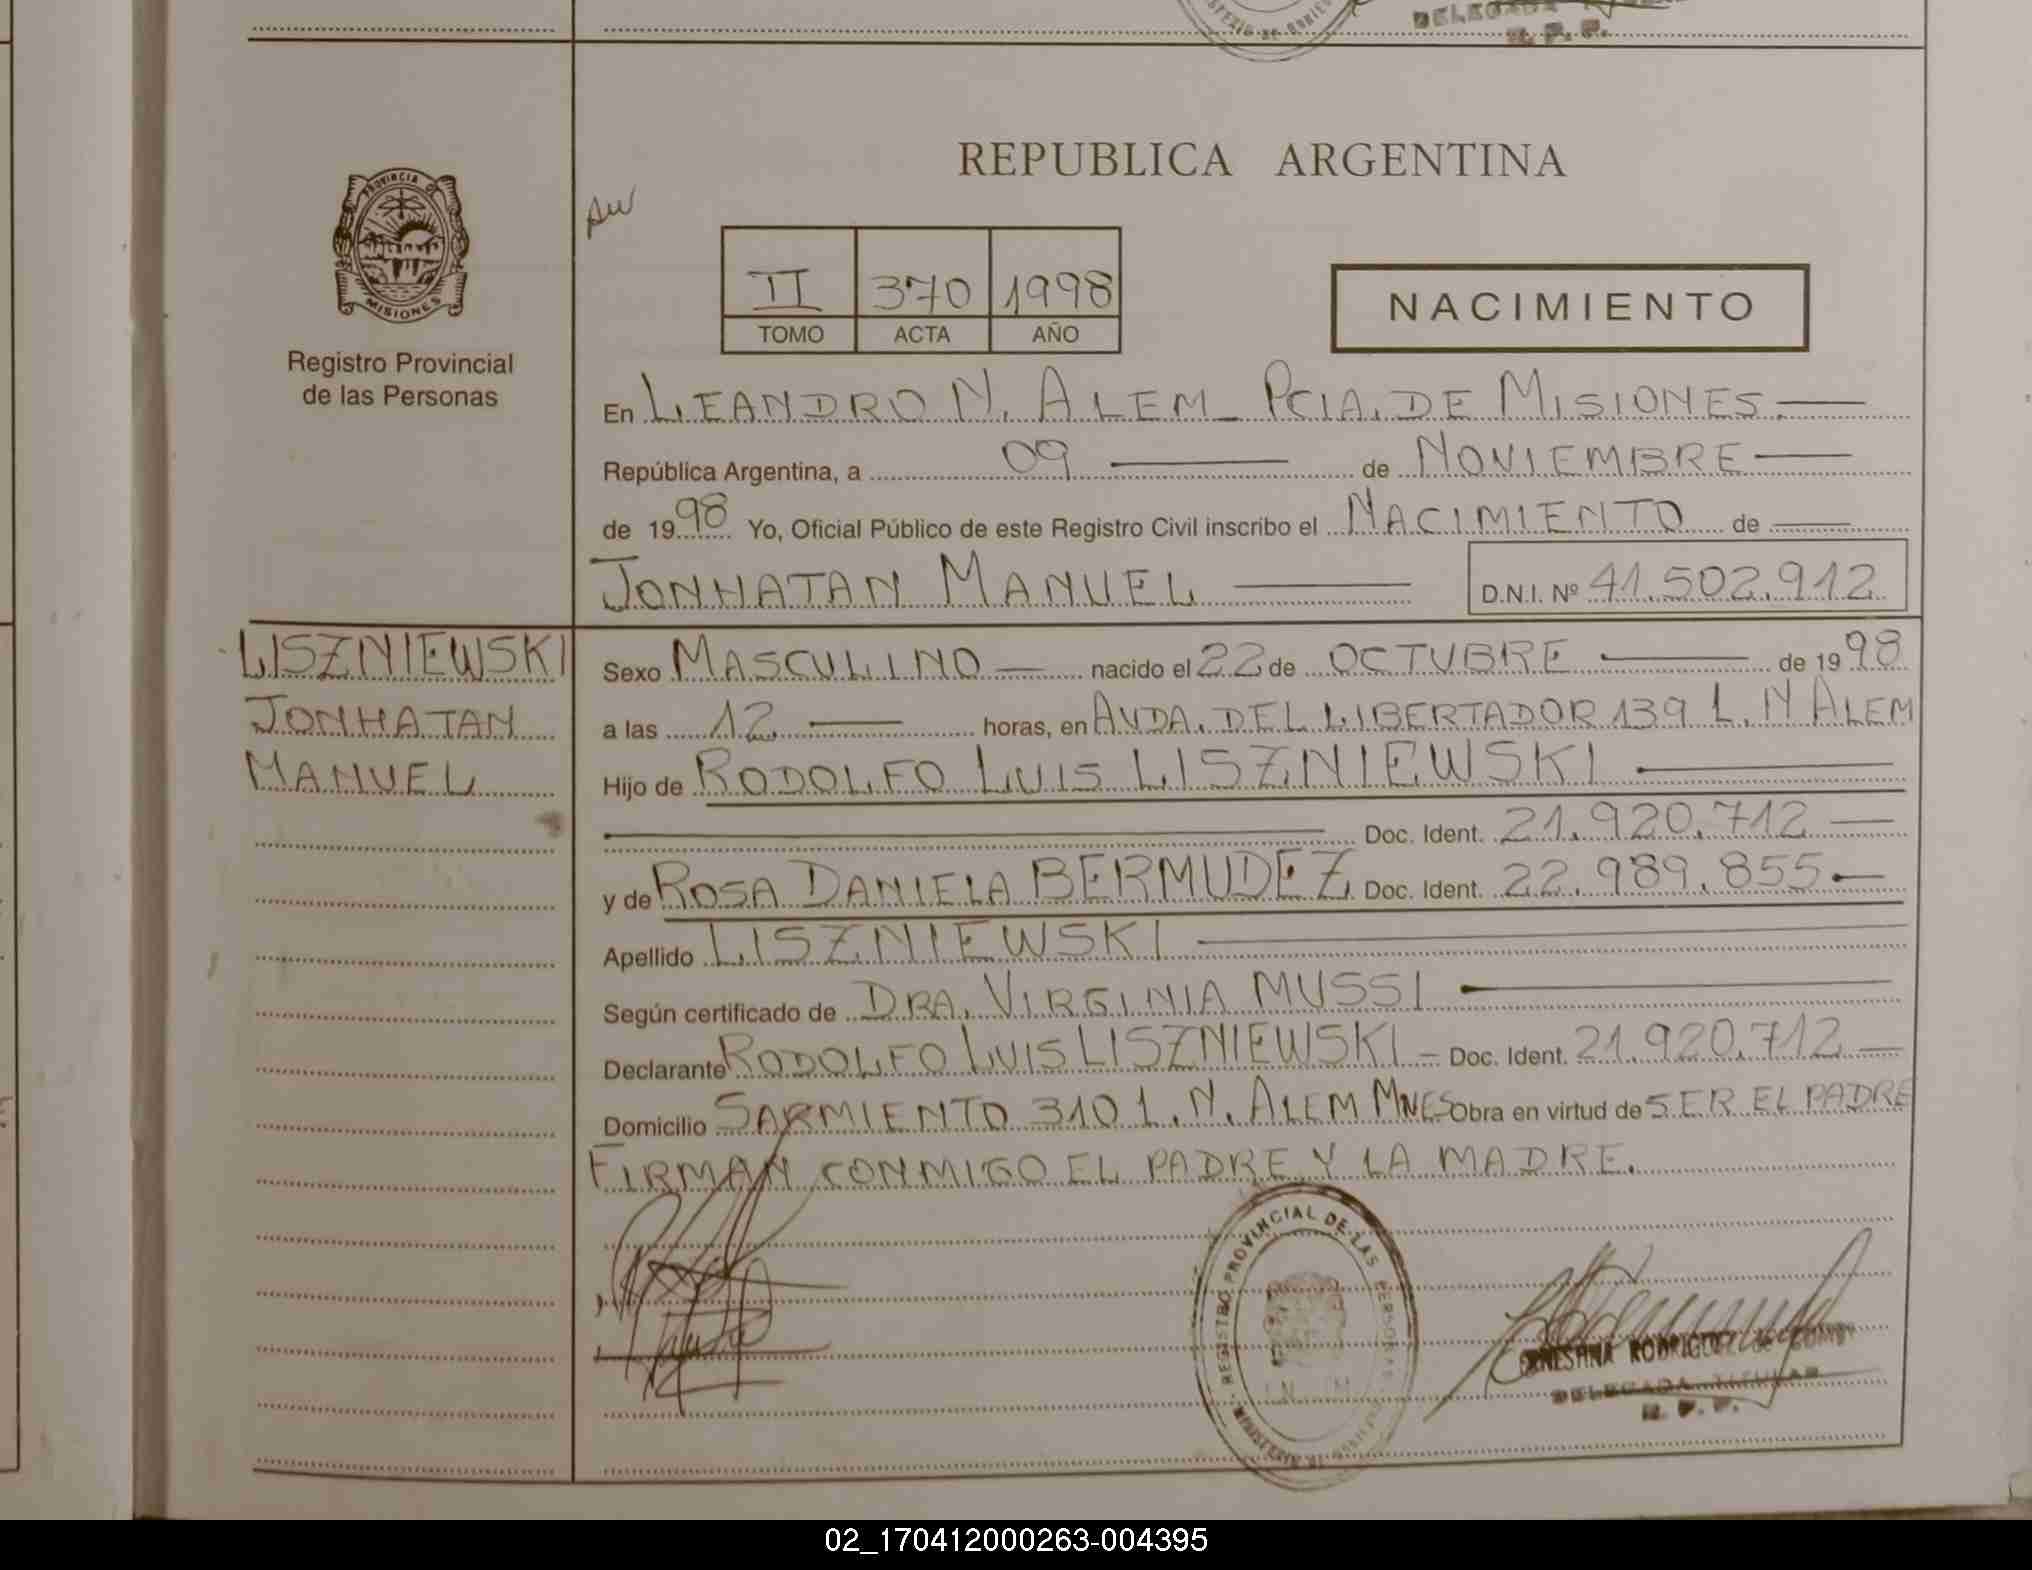 DELEGADA
R. P. P.
REPUBLICA ARGENTINA
PROVINCIA D
MISIONES
Registro Provincial
de las Personas
II 370 1998
TOMO ACTA AÑO
NACIMIENTO
En LEANDRO N. ALEM - PCIA. DE MISIONES.
República Argentina, a 09 de NOVIEMBRE
de 1998 Yo, Oficial Público de este Registro Civil inscribo el NACIMIENTO de
JONHATAN MANUEL D.N.I. Nº 41.502.912
LISZNIEWSKI
JONHATAN
MANUEL
Sexo MASCULINO nacido el 22 de OCTUBRE de 1998
a las 12 horas, en AVDA. DEL LIBERTADOR 139 L. N ALEM
Hijo de RODOLFO LUIS LISZNIEWSKI
Doc. Ident. 21.920.712
y de ROSA DANIELA BERMUDEZ Doc. Ident. 22.989.855
Apellido LISZNIEWSKI
Según certificado de DRA. VIRGINIA MUSSI
Declarante RODOLFO LUIS LISZNIEWSKI - Doc. Ident. 21.920.712
Domicilio SARMIENTO 310 L. N. ALEM MNES Obra en virtud de SER EL PADRE
FIRMAN CONMIGO EL PADRE Y LA MADRE.
REGISTRO PROVINCIAL DE LAS PERSONAS
RODRIGUEZ de
DELEGADA TITULAR
R. P. P.
02_170412000263-004395